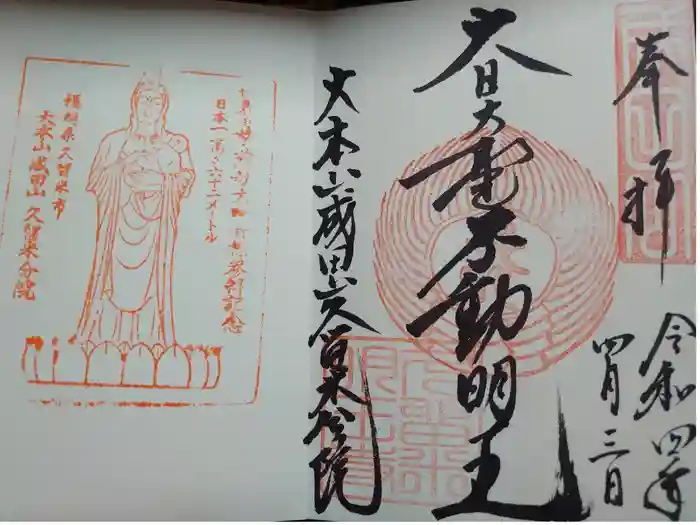 奉拝
令和四年
四月三日
大日大聖不動明王
大本山成田山久留米分院
日本一高さ六十二メートル
参拝記念
福岡県久留米市
大本山成田山久留米分院